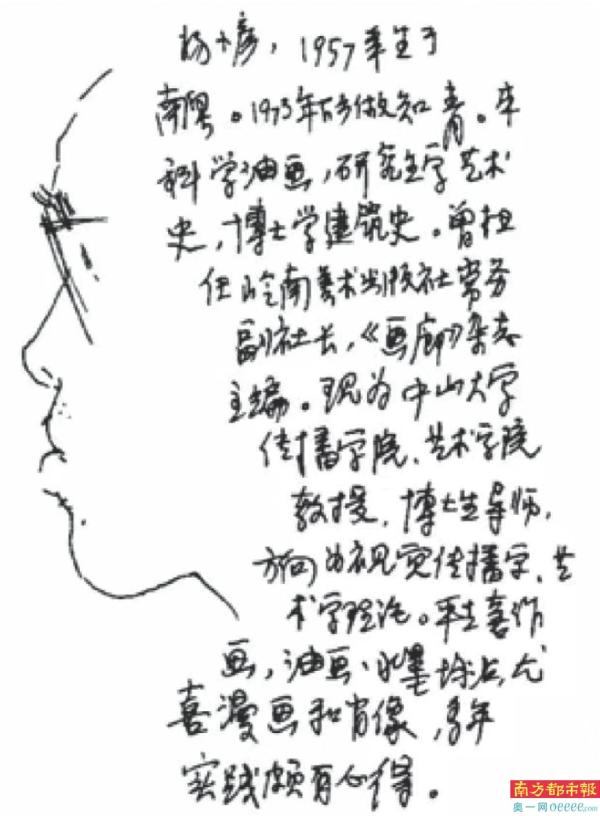 杨小彦，1957年生于
南粤。1975年下乡做知青。本
科学油画，研究生学艺术
史，博士学建筑史。曾担
任岭南美术出版社常务
副社长，《画廊》杂志
主编。现为中山大学
传播学院、艺术学院
教授，博士生导师，
方向为视觉传播学、艺
术学理论。平生喜作
画，油画、水墨均点，尤
喜漫画和肖像，多年
实践颇有心得。
南方都市报
奥一网oeeee.com